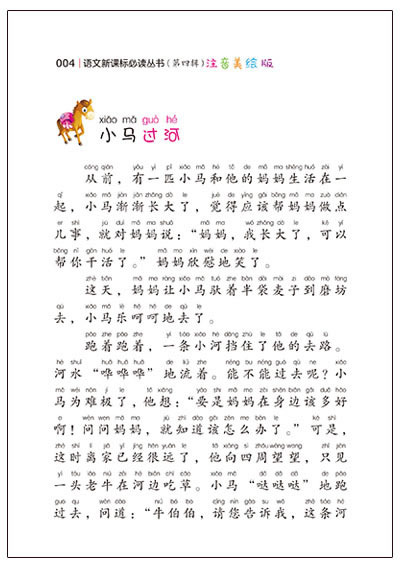 004 | 语文新课标必读丛书（第四辑）注音美绘版
xiǎo mǎ guò hé
小马过河
cóng qián yǒu yì pǐ xiǎo mǎ hé tā de mā ma shēng huó zài yì
从前，有一匹小马和他的妈妈生活在一
qǐ xiǎo mǎ jiàn jiàn zhǎng dà le jué de yīng gāi bāng mā ma zuò diǎn
起，小马渐渐长大了，觉得应该帮妈妈做点
er shì jiù duì mā ma shuō mā ma wǒ zhǎng dà le kě yǐ
儿事，就对妈妈说：“妈妈，我长大了，可以
bāng nǐ gàn huó le mā ma xīn wèi de xiào le
帮你干活了。”妈妈欣慰地笑了。
zhè tiān mā ma ràng xiǎo mǎ tuó zhe bàn dài mài zi dào mò fáng
这天，妈妈让小马驮着半袋麦子到磨坊
qù xiǎo mǎ lè hē hē de qù le
去，小马乐呵呵地去了。
pǎo zhe pǎo zhe yì tiáo xiǎo hé dǎng zhù le tā de qù lù
跑着跑着，一条小河挡住了他的去路。
hé shuǐ huā huā huā de liú zhe néng bu néng guò qù ne xiǎo
河水“哗哗哗”地流着。能不能过去呢？小
mǎ wéi nán jí le tā xiǎng yào shi mā ma zài shēn biān gāi duō hǎo
马为难极了，他想：“要是妈妈在身边该多好
a wèn wen mā ma jiù zhī dào gāi zěn me bàn le kě shì
啊！问问妈妈，就知道该怎么办了。”可是，
zhè shí lí jiā yǐ jīng hěn yuǎn le tā xiàng sì zhōu wàng wang zhǐ jiàn
这时离家已经很远了，他向四周望望，只见
yì tóu lǎo niú zài hé biān chī cǎo xiǎo mǎ dā dā dā de pǎo
一头老牛在河边吃草。小马“哒哒哒”地跑
guò qù wèn dào niú bó bo qǐng nín gào su wǒ zhè tiáo hé
过去，问道：“牛伯伯，请您告诉我，这条河